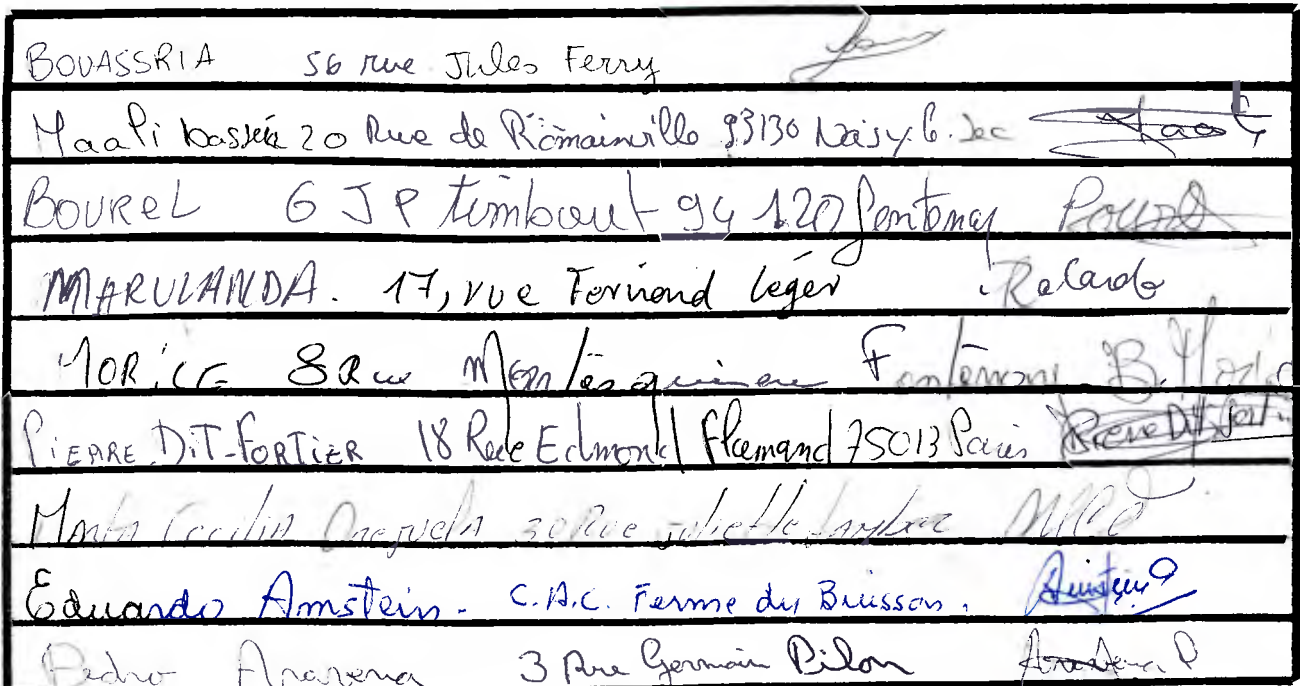 BOUASSRIA 56 rue Jules Ferry
Maali 20 Rue de Romainville 93130 Noisy. l. Sec
BOUREL 6 J P timbaut 94 120 fontenay
MARULANDA. 17, rue Fernand leger
MORICE 8 Rue Fontenay B. Morice
PIERRE DIT-FORTIER 18 Rue Edmond Flamand 75013 Paris Pierre Dit Fortier
Maria Cecilia Orejuela 30 Rue Juliette Lamber
Eduardo Amstein - C.A.C. Ferme du Buisson. Amstein
Pedro Aravena 3 Rue Germain Pilon Aravena P